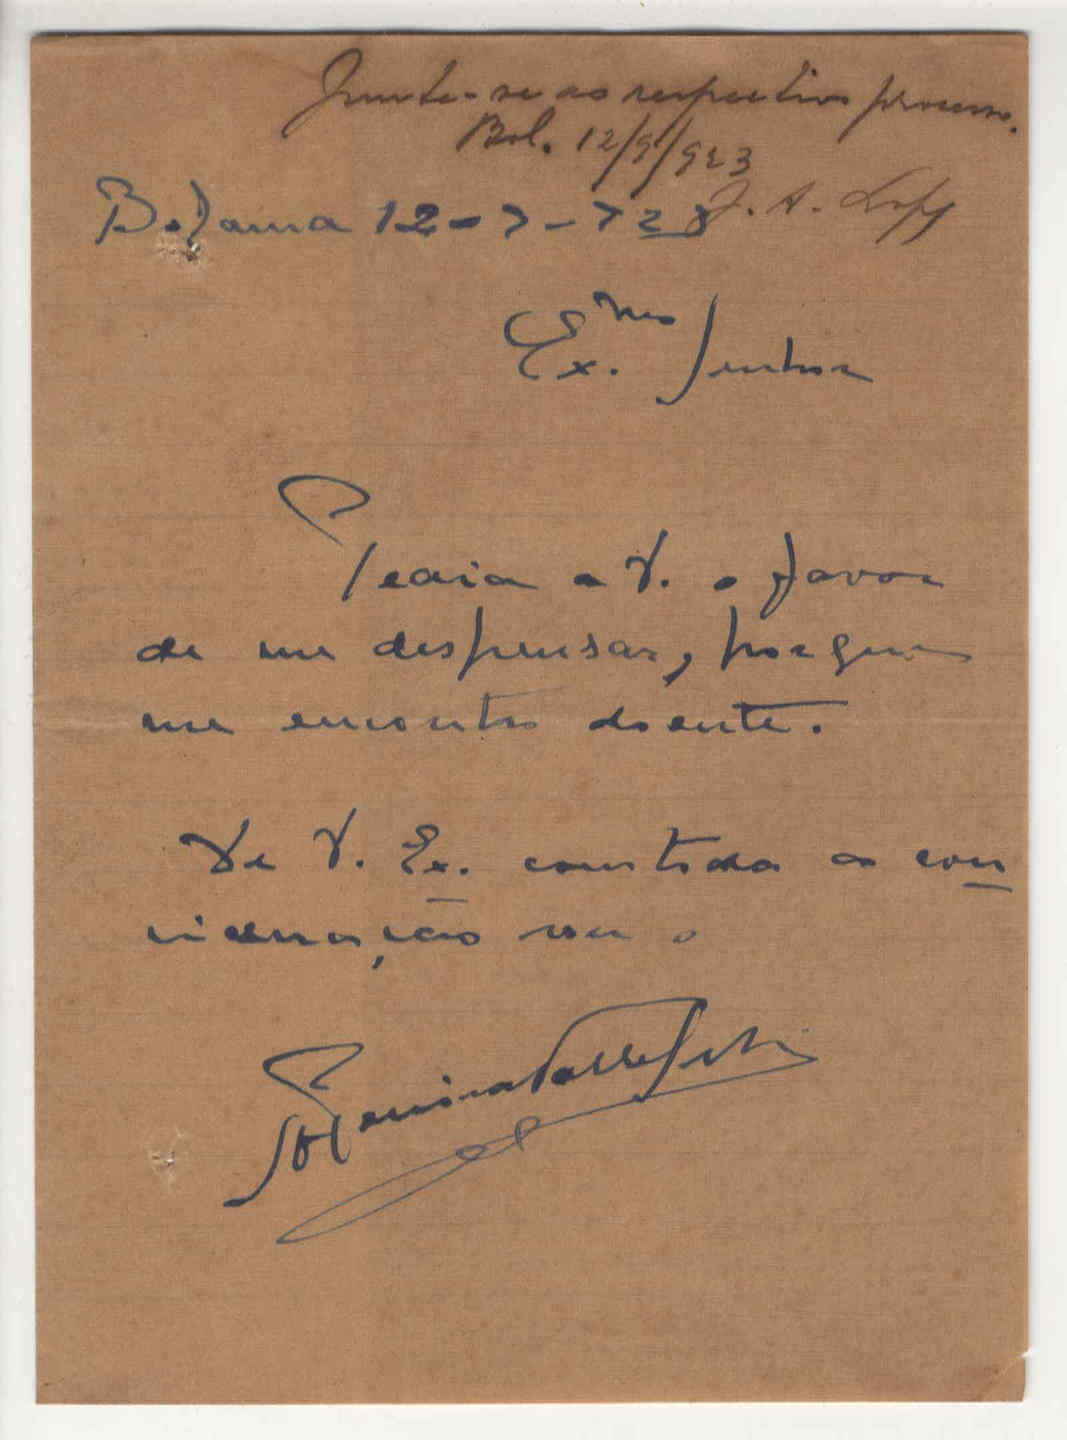 Junte-se ao respectivo processo.
Bol. 12/9/923
J. A. Lopes
Bolama 12-9-923
Ex.mo Senhor
Pedia a V. o favor
de me despensar, porque
me encontro doente.
De V. Ex. com toda a con
cideração sou o